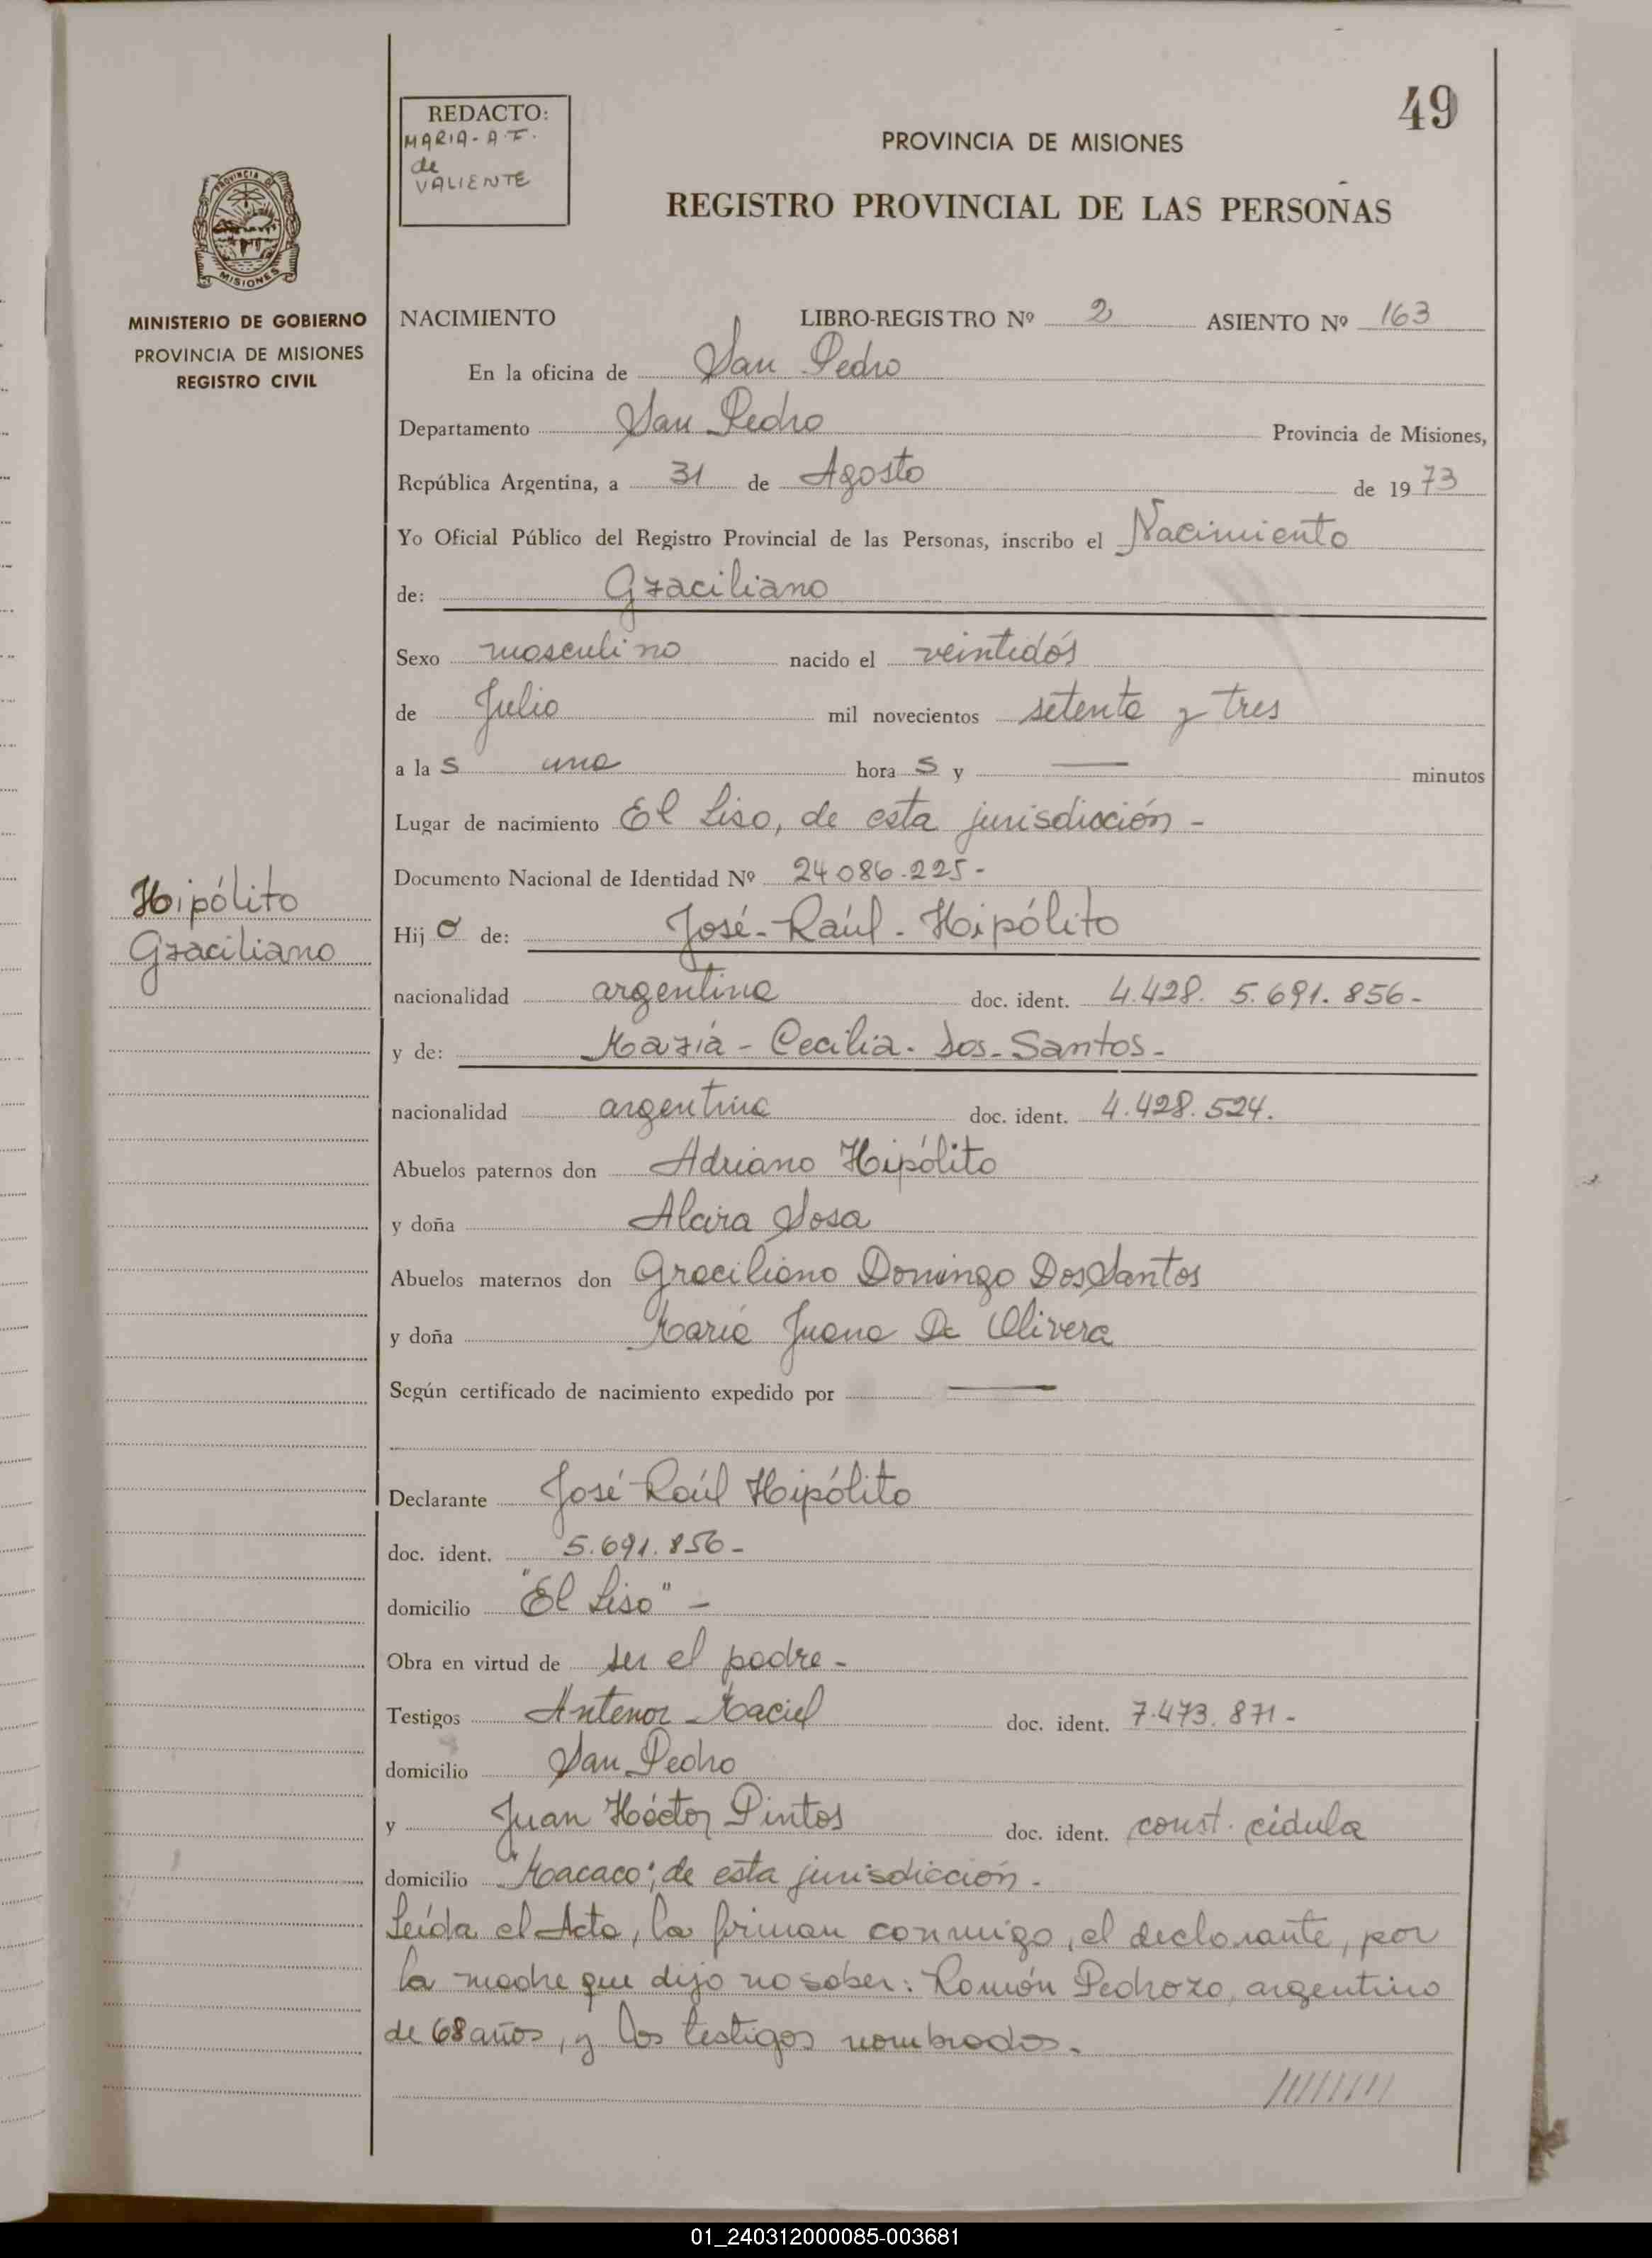 49
REDACTO:
MARIA-A.F.
de
VALIENTE
PROVINCIA DE MISIONES
REGISTRO PROVINCIAL DE LAS PERSONAS
PROVINCIA DE
MISIONES
MINISTERIO DE GOBIERNO
PROVINCIA DE MISIONES
REGISTRO CIVIL
NACIMIENTO LIBRO-REGISTRO Nº 2 ASIENTO Nº 163
En la oficina de San Pedro
Departamento San Pedro Provincia de Misiones,
República Argentina, a 31 de Agosto de 1973
Yo Oficial Público del Registro Provincial de las Personas, inscribo el Nacimiento
de: Graciliano
Sexo masculino nacido el veintidós
de Julio mil novecientos setenta y tres
a las una horas y — minutos
Lugar de nacimiento El Liso, de esta jurisdicción -
Documento Nacional de Identidad Nº 24086.225-
Hipólito
Graciliano
Hijo de: José-Raúl-Hipólito
nacionalidad argentina doc. ident. 4.428. 5.691.856-
y de: María-Cecilia-Dos-Santos-
nacionalidad argentina doc. ident. 4.428.524.
Abuelos paternos don Adriano Hipólito
y doña Alcira Sosa
Abuelos maternos don Graciliano Domingo Dos Santos
y doña María Juana De Olivera
Según certificado de nacimiento expedido por —
Declarante José Raúl Hipólito
doc. ident. 5.691.856-
domicilio "El Liso" -
Obra en virtud de ser el padre-
Testigos Antenor Maciel doc. ident. 7.473.871-
domicilio San Pedro
y Juan Héctor Pintos doc. ident. const. cédula
domicilio "Macaco", de esta jurisdicción.
Leída el Acta, la firman conmigo, el declarante, por
la madre que dijo no saber: Ramón Pedrozo, argentino
de 68 años, y los testigos nombrados.
////////
01_240312000085-003681